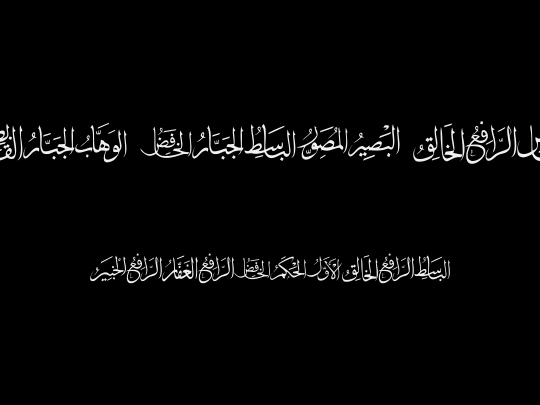 الرَّافِعُ الخَالِقُ البَصِيرُ المُصَوِّرُ البَاسِطُ الجَبَّارُ الخَافِضُ الوَهَّابُ الجَبَّارُ
البَاسِطُ الرَّافِعُ الخَالِقُ الأَوَّلُ الحَكَمُ الخَافِضُ الرَّافِعُ الغَفَّارُ الرَّافِعُ الخَبِيرُ